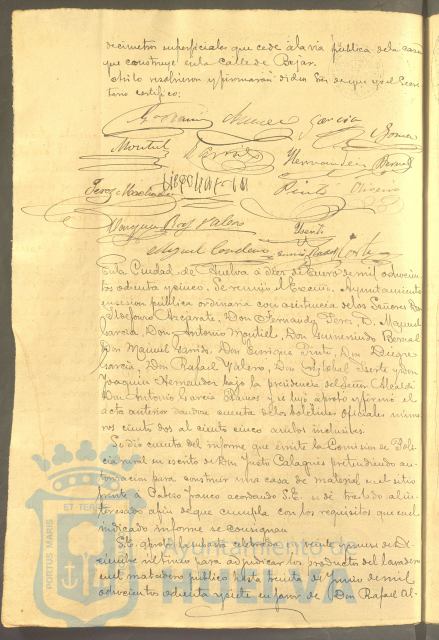 decimetros superficiales que cede á la via pública de la casa
que construye en la calle de Bejar.
Así lo resolvieron y firmarán dichos Sres de que yo el Secre-
tario certifico:
Garcia Gomez
Montiel Garrido Hernandez Bernal
Perez Machado Diego Garcia Pinto
Joaquin Valero Yserti
Miguel
En la Ciudad de Huelva á diez de Enero de mil ochocien
tos ochenta y cinco. Se reunió el Excmo. Ayuntamiento
en sesion pública ordinaria con asistencia de los Señores Don
Ildefonso Azcarate, Don Fernando Perez, D. Manuel
Garcia, Don Antonio Montiel, Don Gumersindo Bernal
Don Manuel Garrido, Don Enrique Pinto, Don Diego
Garcia, Don Rafael Valero, Don Cristobal Yserte y Don
Joaquin Hernandez bajo la presidencia del Señor Alcalde
Don Antonio Garcia Ramos y se leyó aprobó y firmó el
acta anterior dandose cuenta de los boletines oficiales nume
ros ciento dos al ciento cinco ambos inclusives.
Se dió cuenta del informe que emite la Comision de Poli-
cia rural en escrito de Don Justo Calagües pretendiendo au-
torizacion para construir una casa de material en el sitio
frente á Cabezo Franco acordando S.E. se dé traslado al in-
teresado afin de que cumpla con los requisitos que en el
indicado informe se consignan
S.E. aprobó la subasta celebrada en veinte y nueve de Di-
ciembre último para adjudicar los productos del lavadero
en el matadero público hasta treinta de Junio de mil
ochocientos ochenta y siete en favor de Don Rafael Al-
PORTUS MARIS
ET TERRÆ
Ayuntamiento de
HUELVA